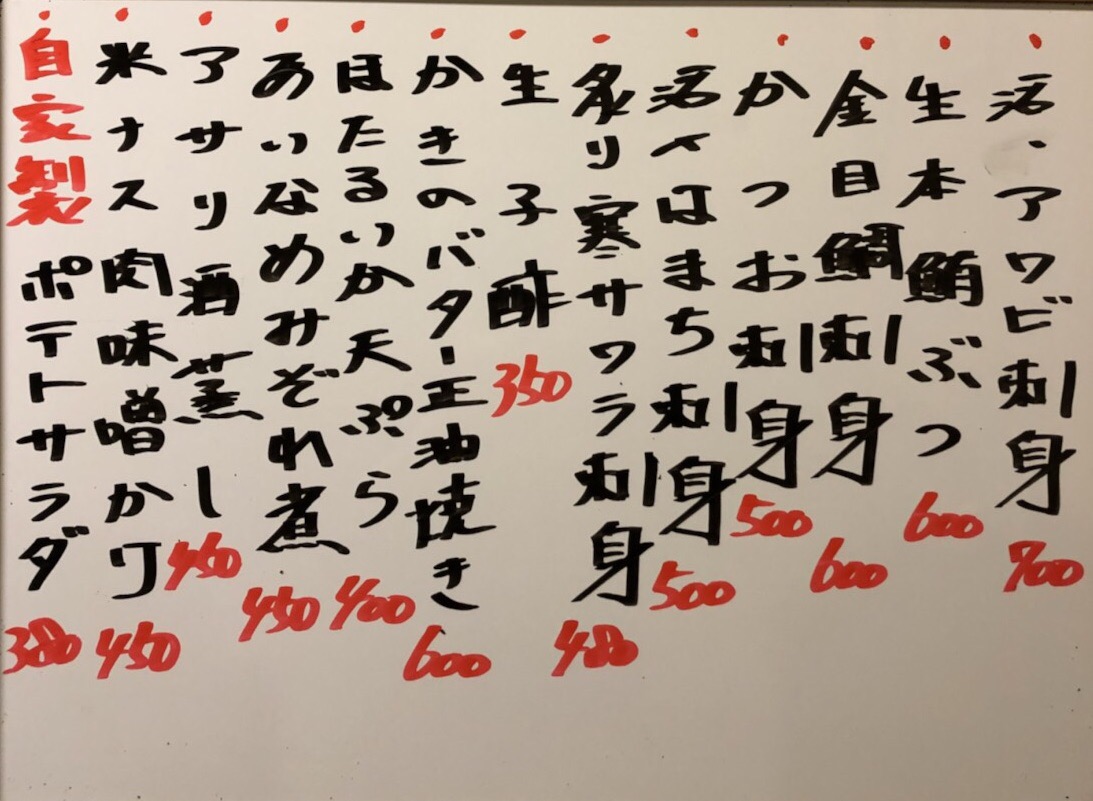 活・アワビ刺身 700
生本鮪ぶつ 600
金目鯛刺身 600
かつお刺身 500
活〆はまち刺身 500
炙り寒サワラ刺身 480
生子酢 350
かきのバター正油焼き 600
ほたるいか天ぷら 400
あいなめみぞれ煮 450
アサリ酒蒸し 450
米ナス肉味噌かけ 450
自家製ポテトサラダ 380